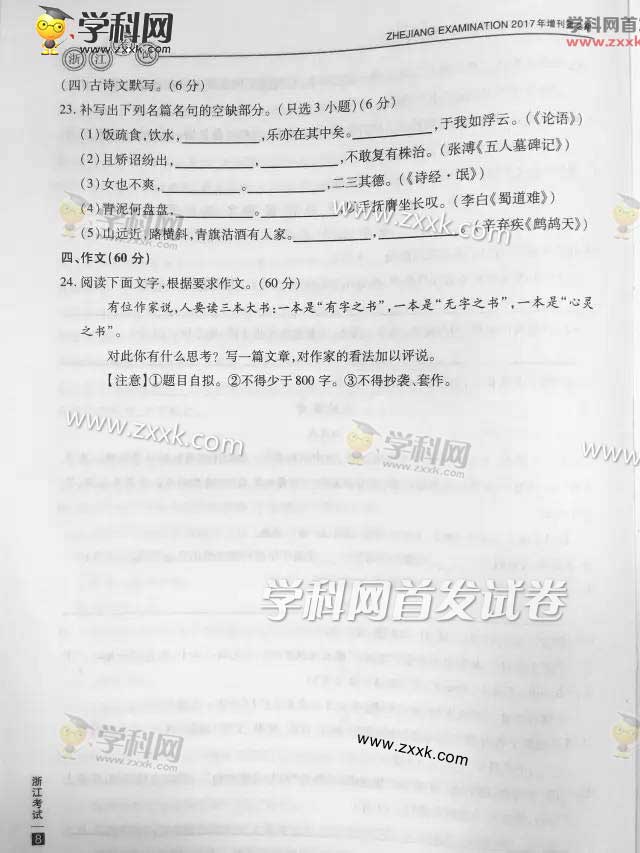 学科网
www.zxxk.com
学科网
www.zxxk
ZHEJIANG EXAMINATION 2017年增刊
浙江 试
(四)古诗文默写。(6分)
23.补写出下列名篇名句的空缺部分。(只选3小题)(6分)
(1)饭疏食,饮水,____________,乐亦在其中矣。____________,于我如浮云。(《论语》)
(2)且矫诏纷出,____________,____________,不敢复有株治。(张溥《五人墓碑记》)
(3)女也不爽,____________。____________,二三其德。(《诗经·氓》)
(4)青泥何盘盘,____________。____________,以手抚膺坐长叹。(李白《蜀道难》)
(5)山远近,路横斜,青旗沽酒有人家。____________,____________。(辛弃疾《鹧鸪天》)
四、作文(60分)
24.阅读下面文字,根据要求作文。(60分)
有位作家说,人要读三本大书:一本是“有字之书”,一本是“无字之书”,一本是“心灵
之书”。
对此你有什么思考?写一篇文章,对作家的看法加以评说。
【注意】①题目自拟。②不得少于800字。③不得抄袭、套作。
学科网
www.zxxk.com
www.zxxk.com
学科网
zxxk.com
www.
学科网首发试卷
学科网
zxxk.com
www.zxxk.com
学科网
浙江考试
8